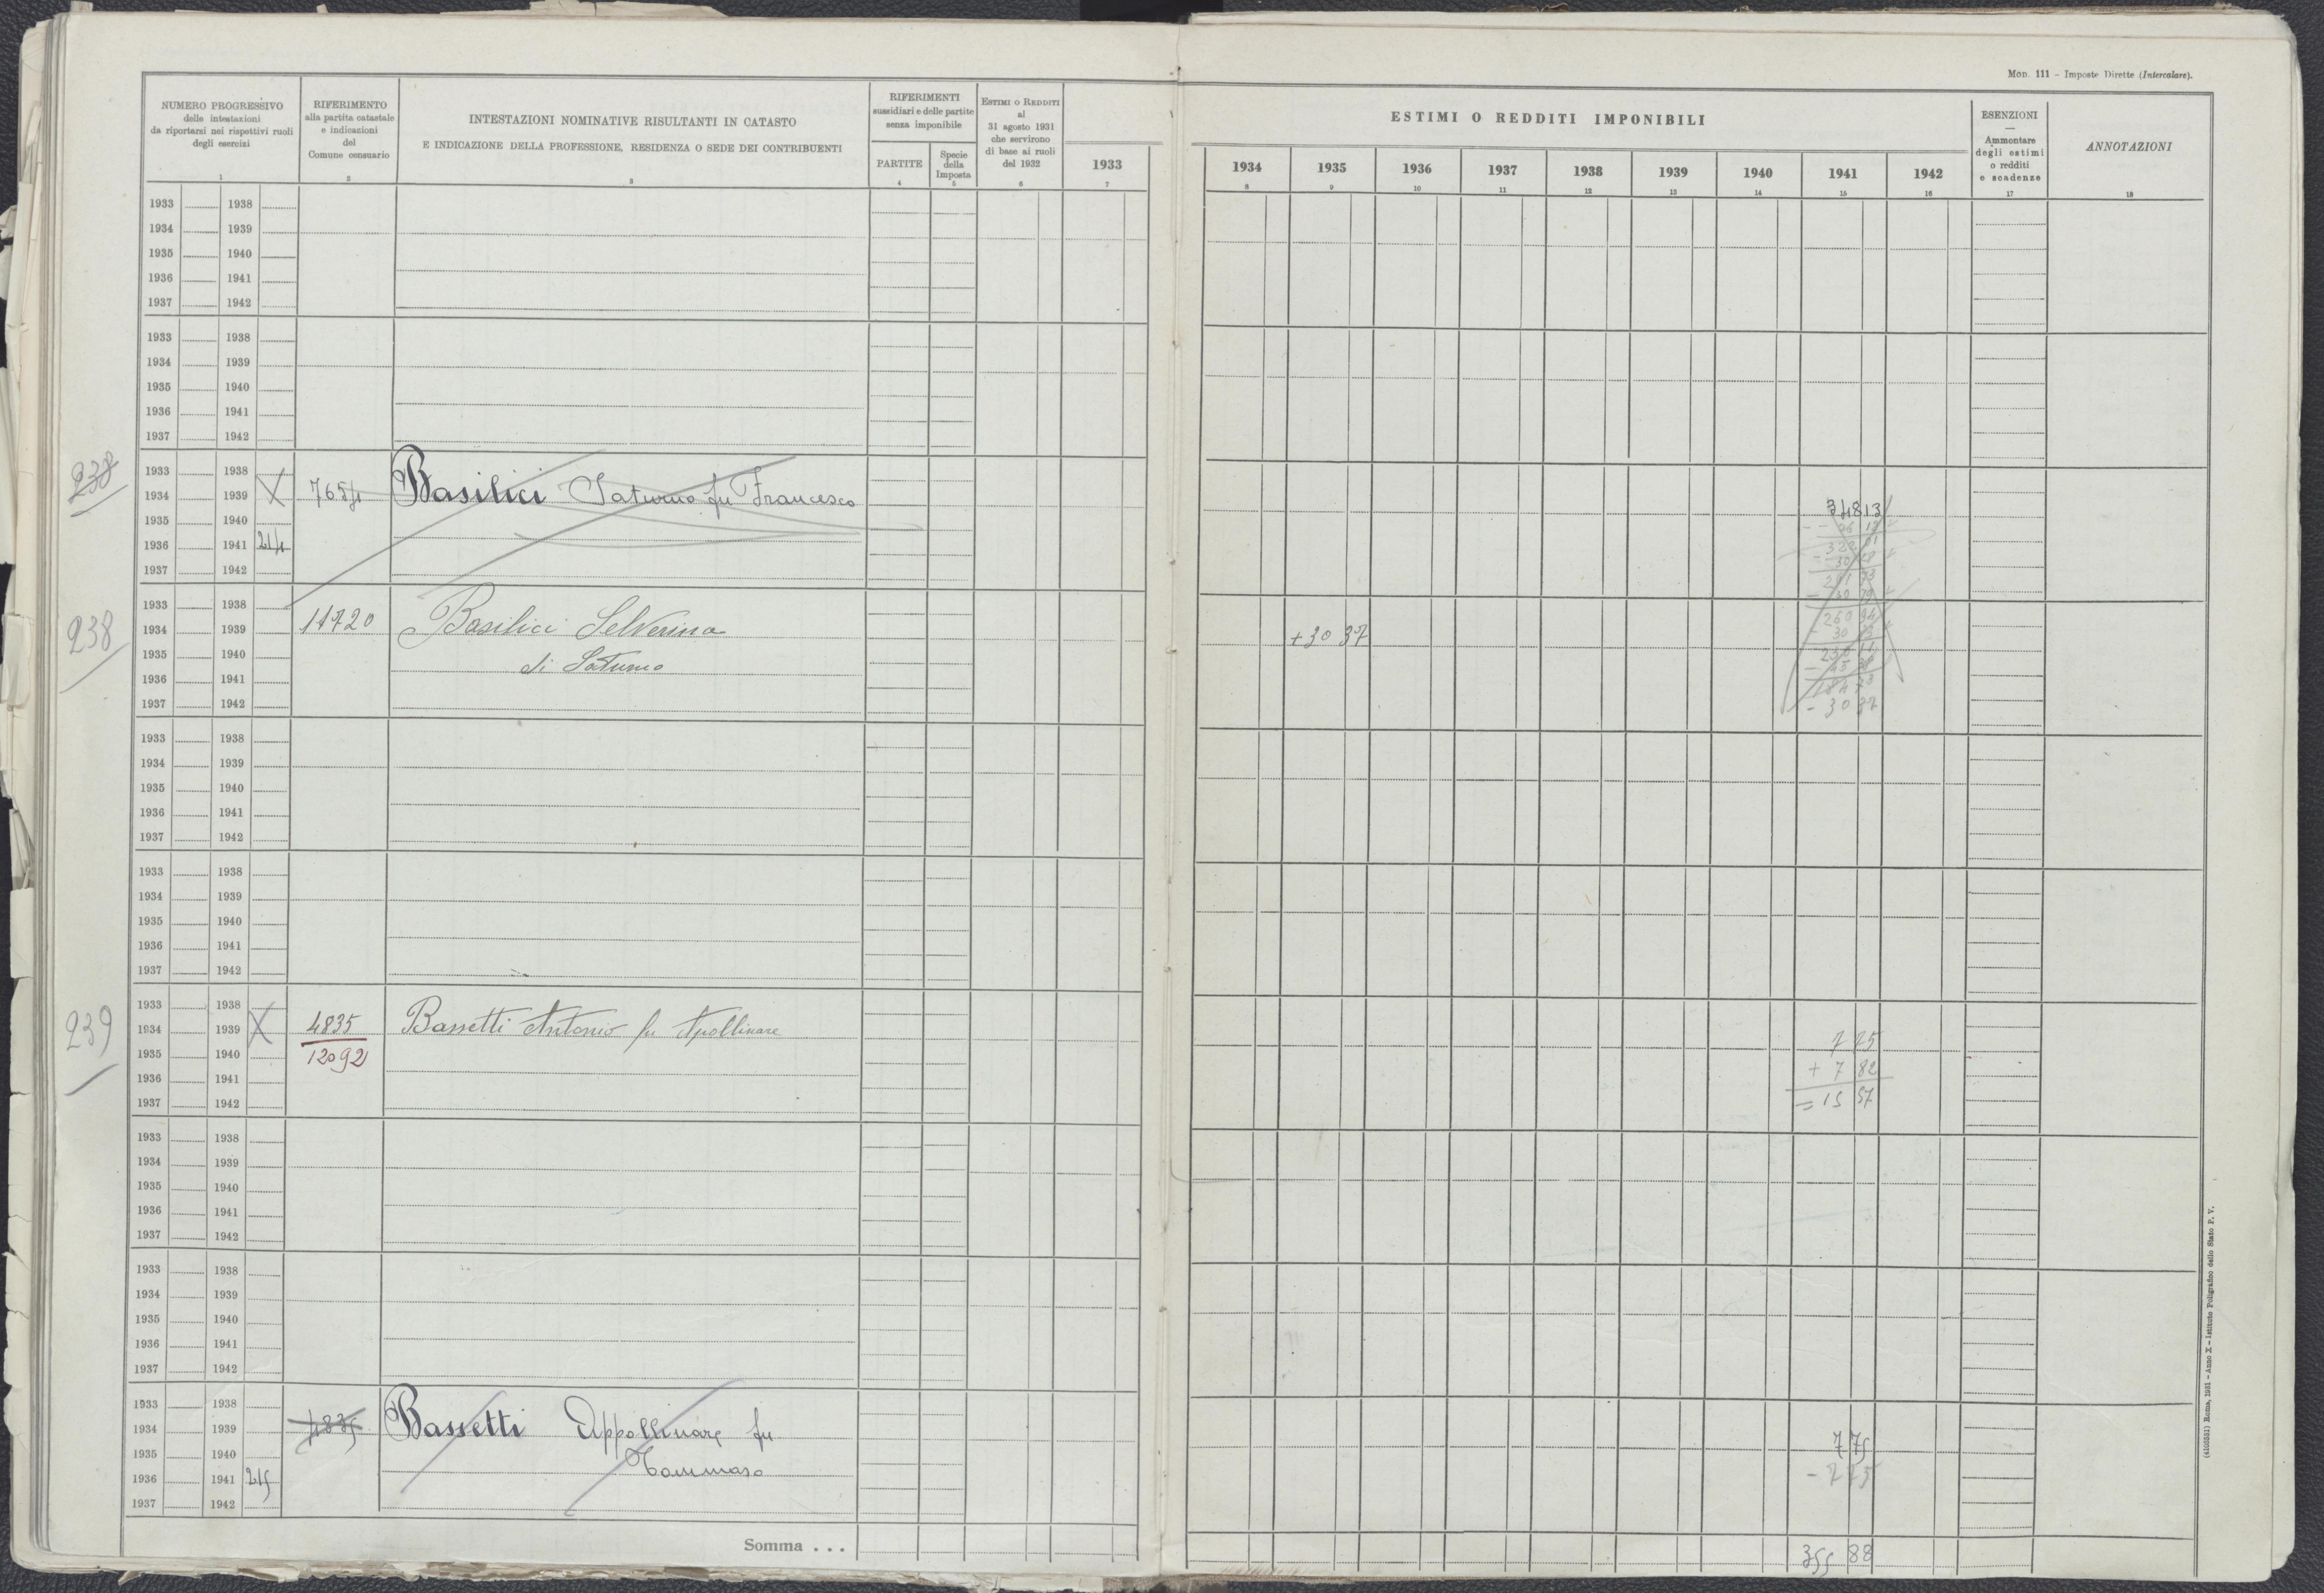 Mod. 111 – Imposte Dirette (Intercalare).
NUMERO PROGRESSIVO
delle intestazioni
da riportarsi nei rispettivi ruoli
degli esercizi
1
RIFERIMENTO
alla partita catastale
e indicazioni
del
Comune censuario
2
INTESTAZIONI NOMINATIVE RISULTANTI IN CATASTO
E INDICAZIONE DELLA PROFESSIONE, RESIDENZA O SEDE DEI CONTRIBUENTI
3
RIFERIMENTI
sussidiari e delle partite
senza imponibile
PARTITE
4
Specie
della
Imposta
5
ESTIMI O REDDITI
al
31 agosto 1931
che servirono
di base ai ruoli
del 1932
6
1933
7
ESTIMI O REDDITI IMPONIBILI
1934 1935 1936 1937 1938 1939 1940 1941 1942
8 9 10 11 12 13 14 15 16
ESENZIONI
—
Ammontare
degli estimi
o redditi
e scadenze
17
ANNOTAZIONI
18
1933 1938
1934 1939
1935 1940
1936 1941
1937 1942
1933 1938
1934 1939
1935 1940
1936 1941
1937 1942
238
1933 1938
1934 1939 X 7654 Basilici Saturno fu Francesco 348 13
1935 1940
1936 1941 214
1937 1942
238
1933 1938 11720 Basilici Selverina
1934 1939 +30 37
1935 1940 di Saturno
1936 1941
1937 1942
- 30 37
1933 1938
1934 1939
1935 1940
1936 1941
1937 1942
1933 1938
1934 1939
1935 1940
1936 1941
1937 1942
239
1933 1938
1934 1939 X 4835 Bassetti Antonio fu Apollinare 7 75
1935 1940 12092
1936 1941 + 7 82
1937 1942 = 15 57
1933 1938
1934 1939
1935 1940
1936 1941
1937 1942
1933 1938
1934 1939
1935 1940
1936 1941
1937 1942
1933 1938
1934 1939 4835 Bassetti Appollinare fu
1935 1940 7 75
1936 1941 215 Tommaso - 7 75
1937 1942
Somma . . . 355 88
(4103551) Roma, 1931 – Anno X – Istituto Poligrafico dello Stato P. V.